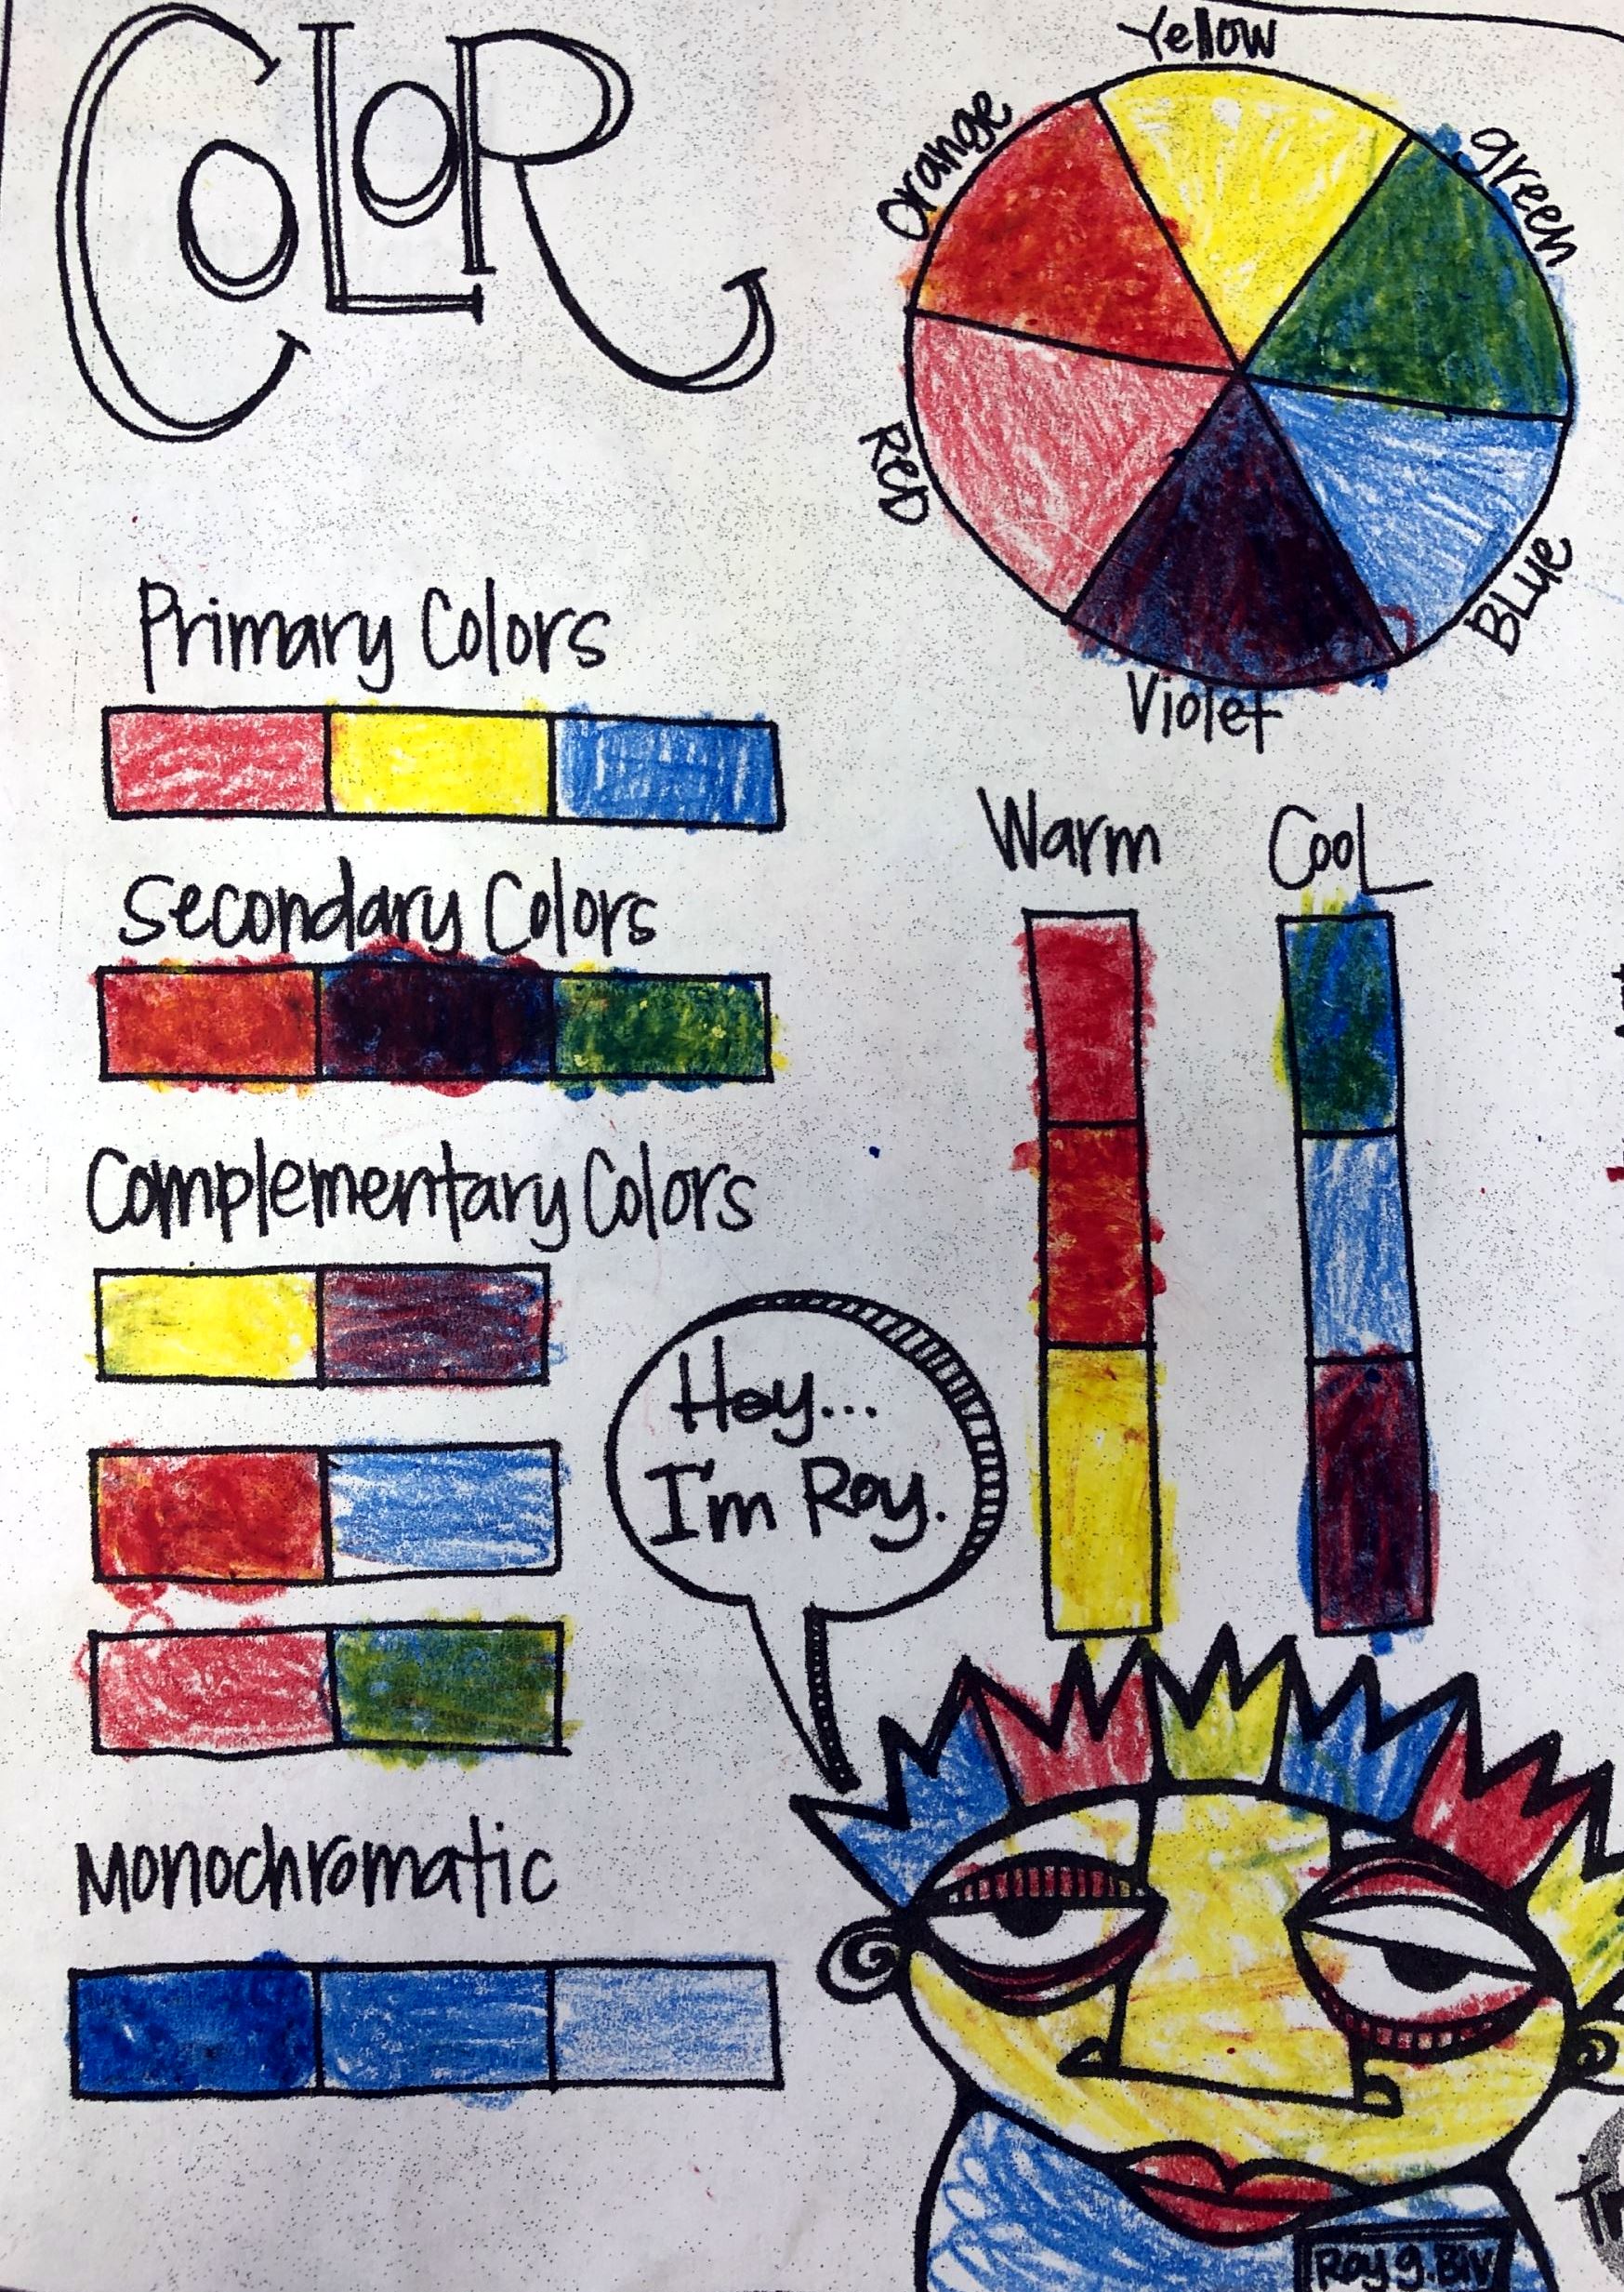 COLOR
Yellow
Orange
green
RED
BLUe
Violet
Primary Colors
Secondary Colors
Complementary Colors
Monochromatic
Warm
Cool
Hey...
I'm Roy.
Roy g.Biv